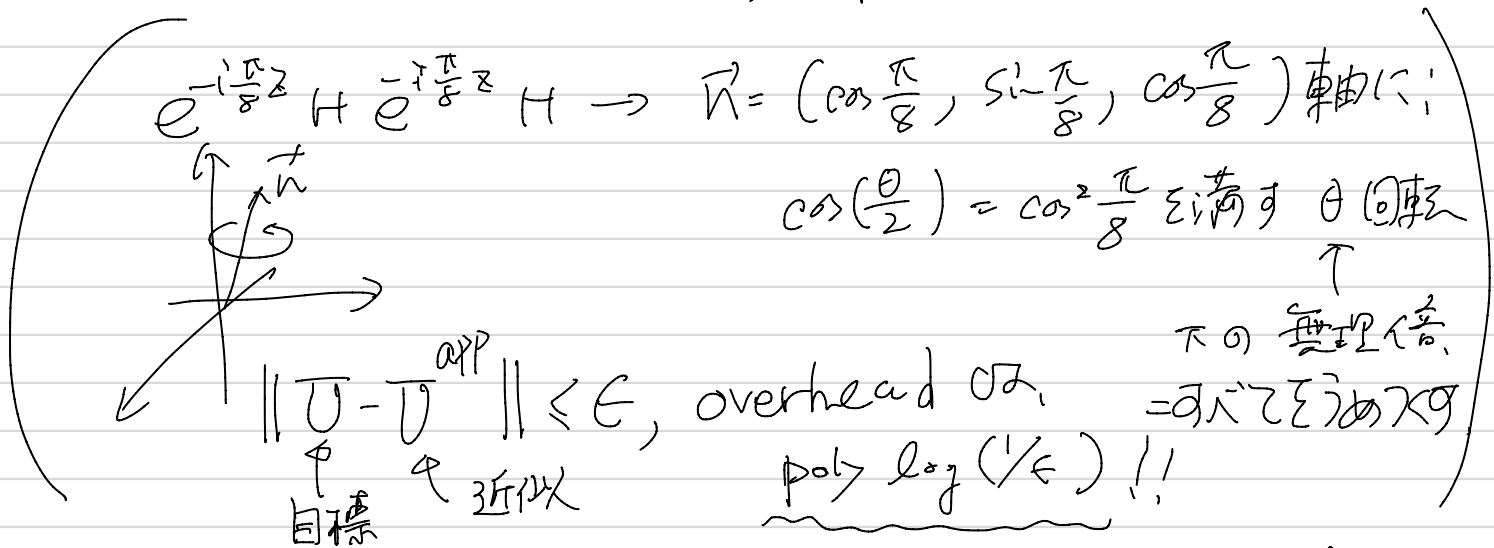 e^{-i π/8 Z} H e^{-i π/8 Z} H → n⃗ = (cos π/8, sin π/8, cos π/8) 軸に
n⃗
cos(θ/2) = cos² π/8 を満す θ回転
↑
πの無理倍
=すべてをうめつくす
‖U - U^{app}‖ ≤ ε, overhead は、
poly log(1/ε) !!
↑ 目標
↑ 近似